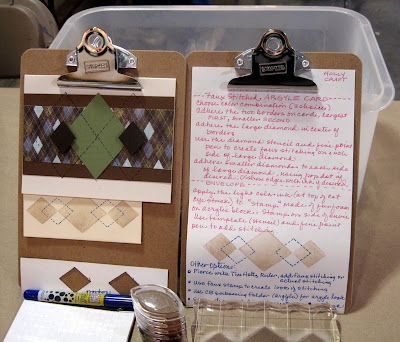 HOLLY
CRAFT
Faux Stitched, ARGYLE CARD
Choose color combination
Adhere the two borders on cards, largest
FIRST, smaller SECOND
Adhere the large diamond in center of
borders
Use the diamond stencil and fine point
pen to create faux stitching on each
side of large diamond.
Adhere smaller diamonds to each side
of large diamond, using top dot of
ENVELOPE
Apply the light color
to "Stamp" made of
on acrylic block. Stamp on side of
Use template (stencil) and fine point
pen to add stitching.
Other Options:
Pierce with Tim Holtz Ruler, add faux stitching or
actual stitching
Use faux stamp to create look of stitching
Use CB embossing folder (argyle) for argyle look